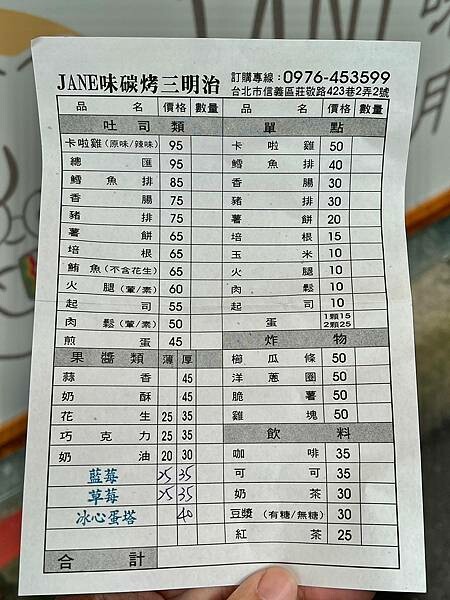 JANE味碳烤三明治
訂購專線：0976-453599
台北市信義區莊敬路423巷2弄2號
品名 價格 數量
吐司類
卡啦雞(原味/辣味) 95
總匯 95
鱈魚排 85
香腸 75
豬排 75
薯餅 65
培根 65
鮪魚(不含花生) 65
火腿(葷/素) 60
起司 55
肉鬆(葷/素) 50
煎蛋 45
果醬類 薄 厚
蒜香 45
奶酥 45
花生 25 35
巧克力 25 35
奶油 20 30
藍莓 25 35
草莓 25 35
冰心蛋塔 40
合計
品名 價格 數量
單點
卡啦雞 50
鱈魚排 40
香腸 30
豬排 30
薯餅 20
培根 15
玉米 10
火腿 10
肉鬆 10
起司 10
蛋 1顆15 2顆25
炸物
櫛瓜條 50
洋蔥圈 50
脆薯 50
雞塊 50
飲料
咖啡 35
可可 35
奶茶 30
豆漿(有糖/無糖) 30
紅茶 25